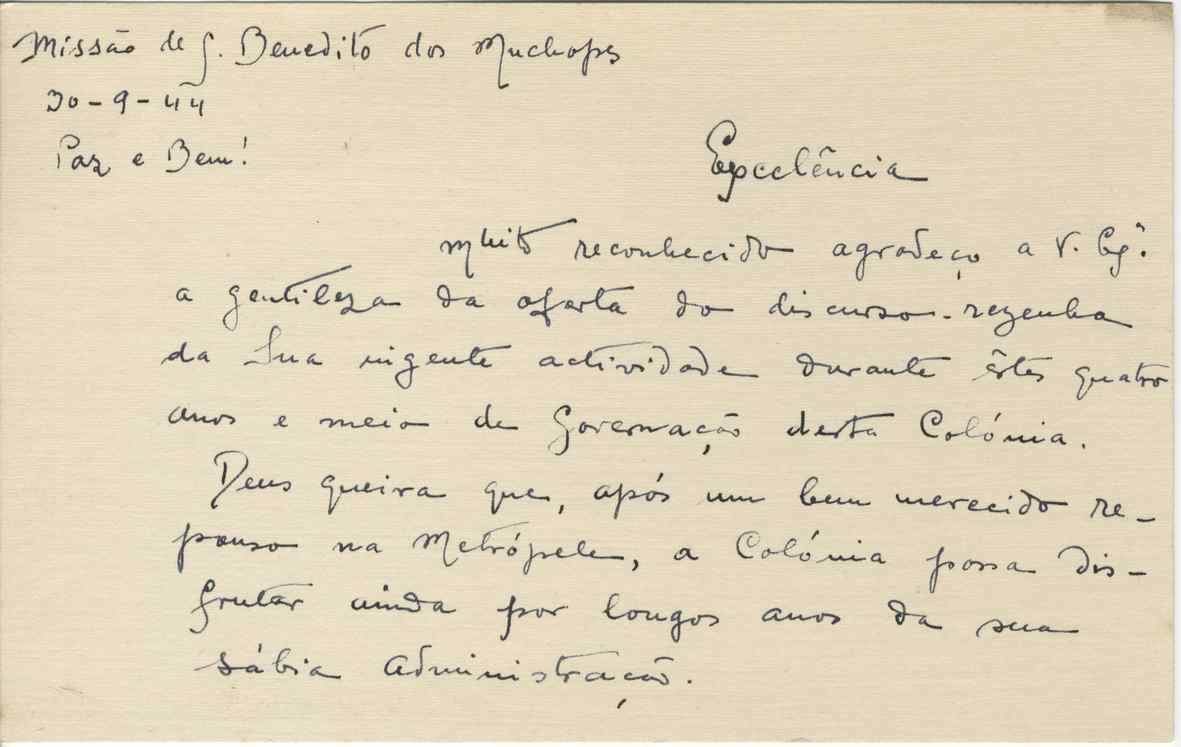 Missão de S. Benedito dos Muchopes
30-9-44
Paz e Bem!
Excelência
Muito reconhecido agradeço a V. Exª.
a gentileza da oferta do discurso-rezenha
da Sua ingente actividade durante êstes quatro
anos e meio de Governação desta Colónia.
Deus queira que, após um bem merecido re-
pouso na Metrópele, a Colónia possa dis-
frutar ainda por longos anos da sua
sábia Administração.